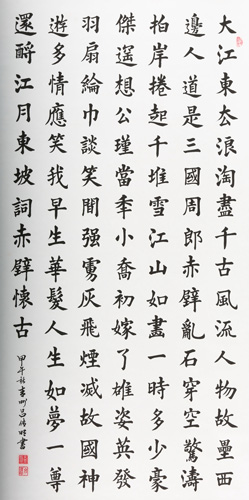 大江東去浪淘盡千古風流人物故壘西
邊人道是三國周郎赤壁亂石穿空驚濤
拍岸捲起千堆雪江山如畫一時多少豪
傑遥想公瑾當秊小喬初嫁了雄姿英發
羽扇綸巾談笑間强虜灰飛煙滅故國神
遊多情應笑我早生華髮人生如夢一尊
還酹江月東坡詞赤壁懷古
甲午秋吕書